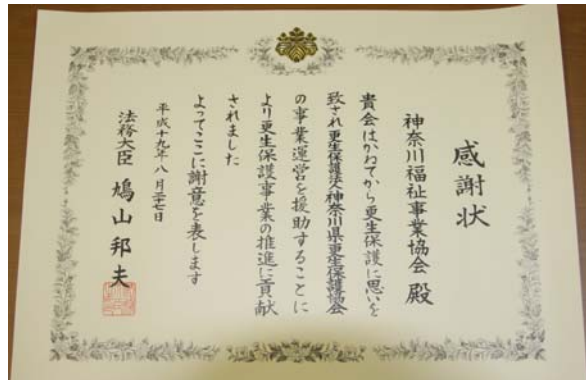 感謝状
神奈川福祉事業協会 殿
貴会はかねてから更生保護に思いを
致され更生保護法人神奈川県更生保護協会
の事業運営を援助することに
より更生保護事業の推進に貢献
されました
よってここに謝意を表します
平成十九年八月二十七日
法務大臣 鳩山邦夫